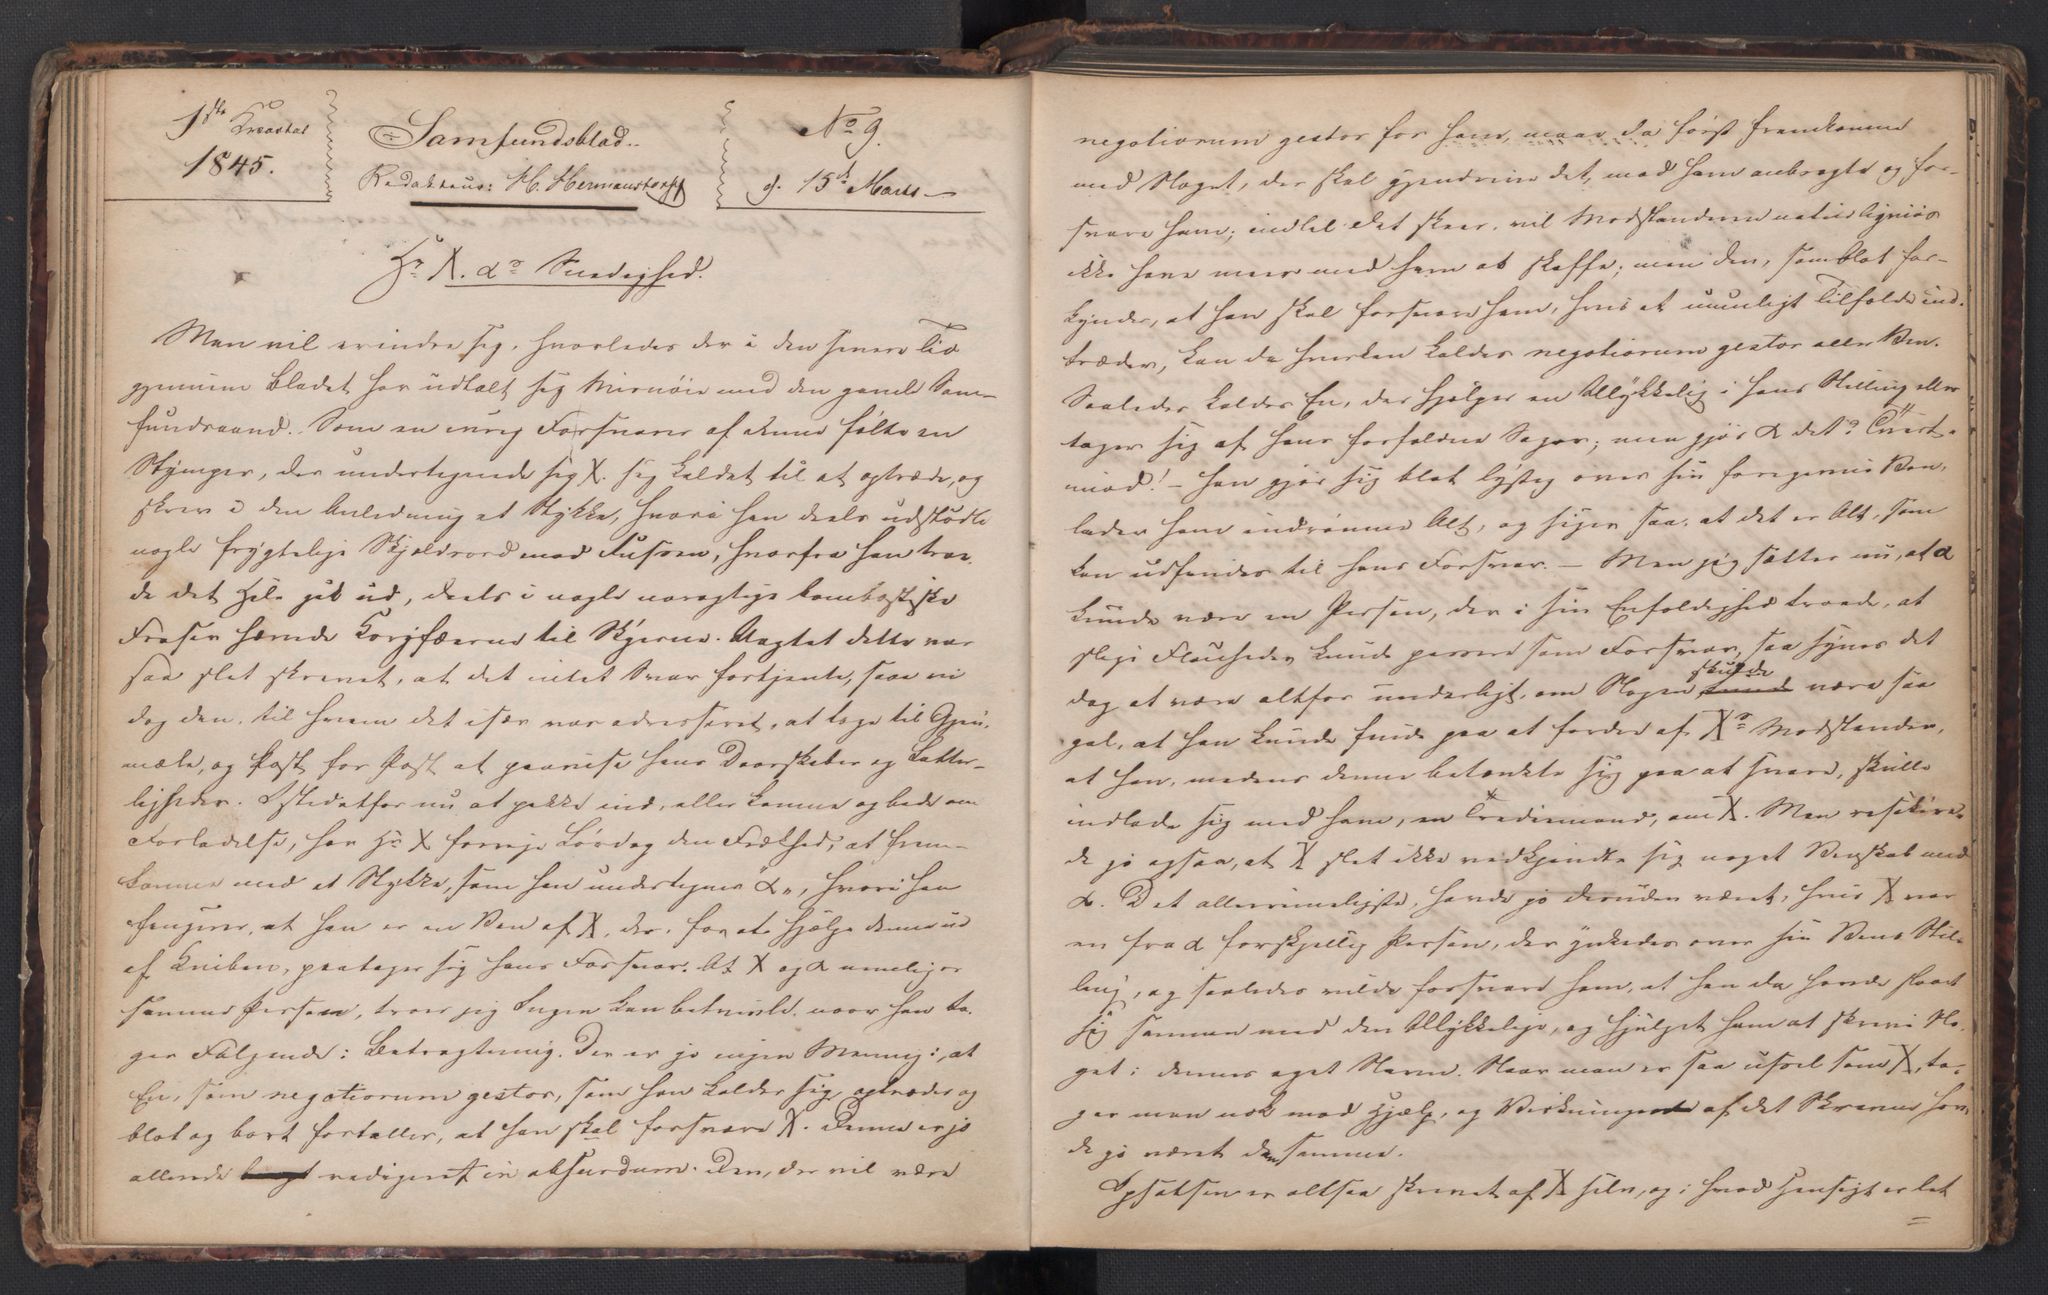 1ste Kvartal
1845.
Samfundsblad.
Redakteur: H. Hermanstorff
No 9.
d. 15de Marts
Hr X. α's Snedighed.
Man vil erindre sig, hvorledes der i den senere Tid
gjennem Bladet har udtalt sig Misnøie med den gamle Sam-
fundsaand. Som en ivrig Forsvarer af denne følte en
Stymper, der undertegnede sig X. sig kaldet til at optræde, og
skrev i den Anledning et Stykke, hvori han deels udstødte
nogle frygtelige Skjeldsord mod Tussen, hvorfra han troe-
de det Hele gik ud, deels i nogle vaagtige bombastiske
Fraser hævede Coryfæerne til Skyerne. Uagtet dette var
saa slet skrevet, at det intet Svar fortjente, saae vi
dog den, til hvem det især var adresseret, at tage til Gjen-
mæle, og Post for Post at paavise hans Daarskaber og Latter-
ligheder. Istedetfor nu at pakke ind, eller komme og bede om
Forladelse, har Hr X forrige Lørdag den Frækhed, at frem-
komme med et Stykke, som han undertegner α, hvori han
fingerer, at han er en Ven af X, der, for at hjelpe denne ud
af Kniben, paatager sig hans Forsvar. At X og α ere een og
samme Person, troer jeg Ingen kan betvivle, naar han ta-
ger Følgende i Betragtning. Der er jo ingen Mening i, at
En, som negotiorum gestor, som han kalder sig, optræder og
blot og bart fortæller, at han skal forsvare X. Denne er jo
allerede redigeret in absurdum. Den, der vil være
negotiorum gestor for ham, maae da først fremkomme
med Noget, der skal gjendrive det, mod ham anbragte og for-
svare ham; indtil det skeer, vil Modstanderne naturligviis
ikke have meer med ham at skaffe; men den, som blot for-
kynder, at han skal forsvare ham, hvis et umuligt Tilfælde ind-
træder, kan da hverken kaldes negotiorum gestor eller Ven.
Saaledes kaldes En, der hjelper en Ulykkelig i hans Stilling eller
tager sig af hans forfaldne Sager; men gjør α det? Tvert-
imod! – han gjør sig blot lystig over sin foregivne Ven,
lader ham indrømme Alt, og siger saa, at det er Alt, som
kan udfindes til hans Forsvar. – Men jeg sætter nu, at α
kunde være en Person, der i sin Enfoldighed troede, at
slige Flauheder kunde passere som Forsvar, saa synes det
dog at være altfor underligt, om Nogen skulde være saa
gal, at han kunde finde paa at fordre af X's Modstander,
at han, medens denne betænkte sig paa at svare, skulle
indlade sig med ham, en Trediemand, om X. Man reskere-
de jo ogsaa, at X slet ikke vedkjendte sig noget Venskab med
α. Det allerrimeligste, havde jo desuden været, hvis X var
en fra α forskjellig Person, der ynkedes over sin Vens Stil-
ling, og saaledes vilde forsvare ham, at han da havde slaaet
sig sammen med den Ulykkelige, og hjulpet ham at skrive No-
get i dennes eget Navn. Naar man er saa ussel som X, ta-
ger man nok mod Hjælp, og Virkningen af det Skrevne hav-
de jo været den samme.
Opsatsen er altsaa skrevet af X selv, og i hvad Hensigt er let
=